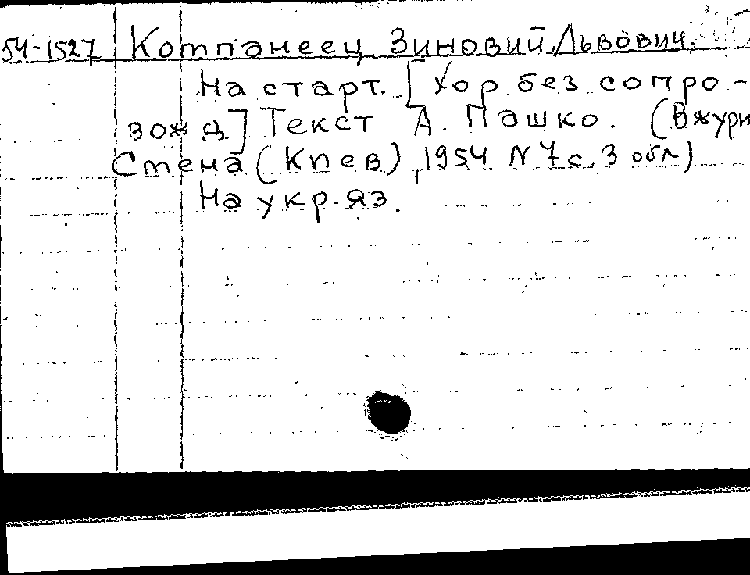 54-1527 Компанеец Зиновий Львович.
На старт. [Хор без сопро-
вожд] Текст А. Пашко. (В журн
Смена (Киев), 1954 N 7 с. 3 обл)
На укр. яз.